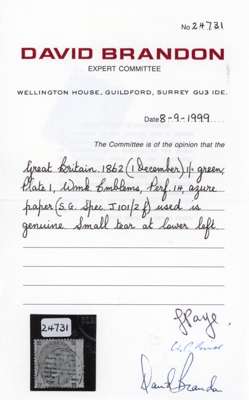 No 24731
DAVID BRANDON
EXPERT COMMITTEE
WELLINGTON HOUSE, GUILDFORD, SURREY GU3 1DE.
Date 8-9-1999
The Committee is of the opinion that the
Great Britain. 1862 (1 December) 1/- green,
Plate 1, Wmk Emblems, Perf. 14, azure
paper (S.G. Spec J101/2f) used is
genuine Small tear at lower left.
24731
David Brandon